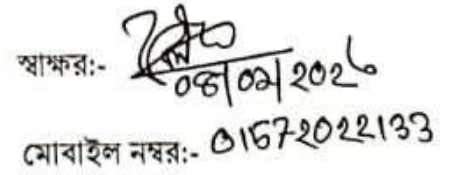 স্বাক্ষর:-
০৪/০২/202৬
মোবাইল নম্বর:- 01572022133